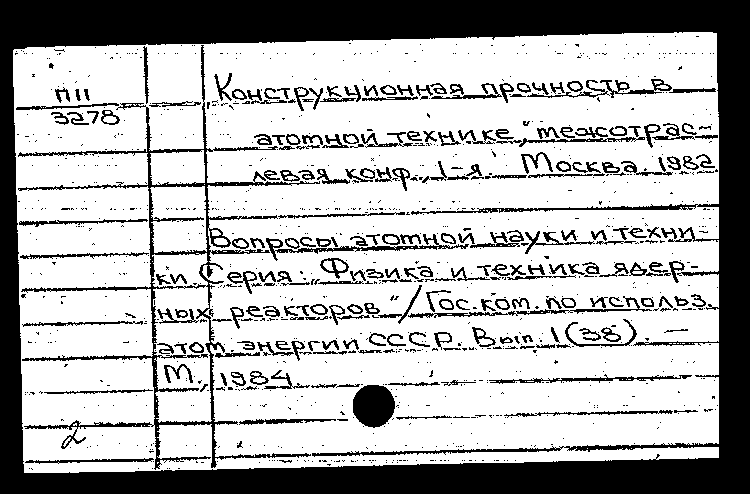 П11
3278
Конструкционная прочность в
атомной технике", межотрас-
левая конф., 1-я. Москва, 1982
Вопросы атомной науки и техни-
ки Серия: „Физика и техника ядер-
ных реакторов"/Гос.ком. по использ.
атом. энергии СССР. Вып. 1(38). —
М., 1984.
2